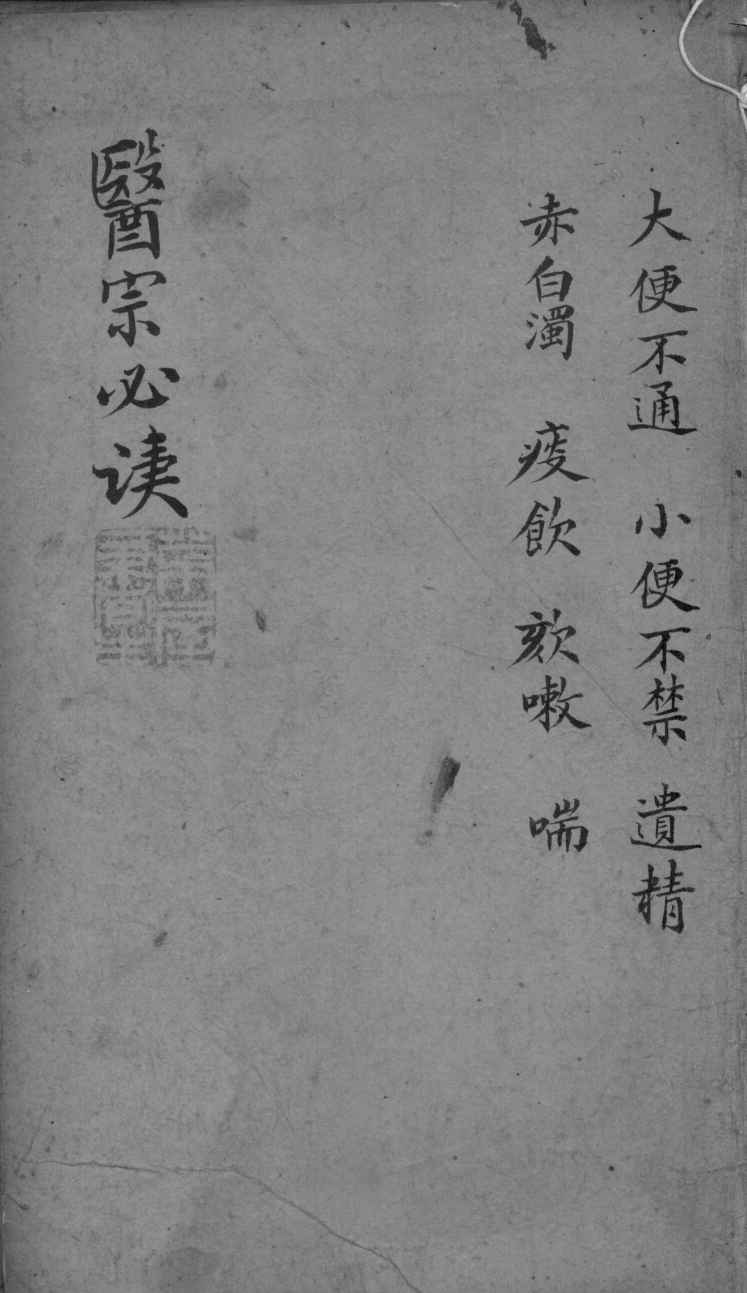 大便不通 小便不禁 遺精
赤白濁 痰飲 欬嗽 喘
醫宗必读